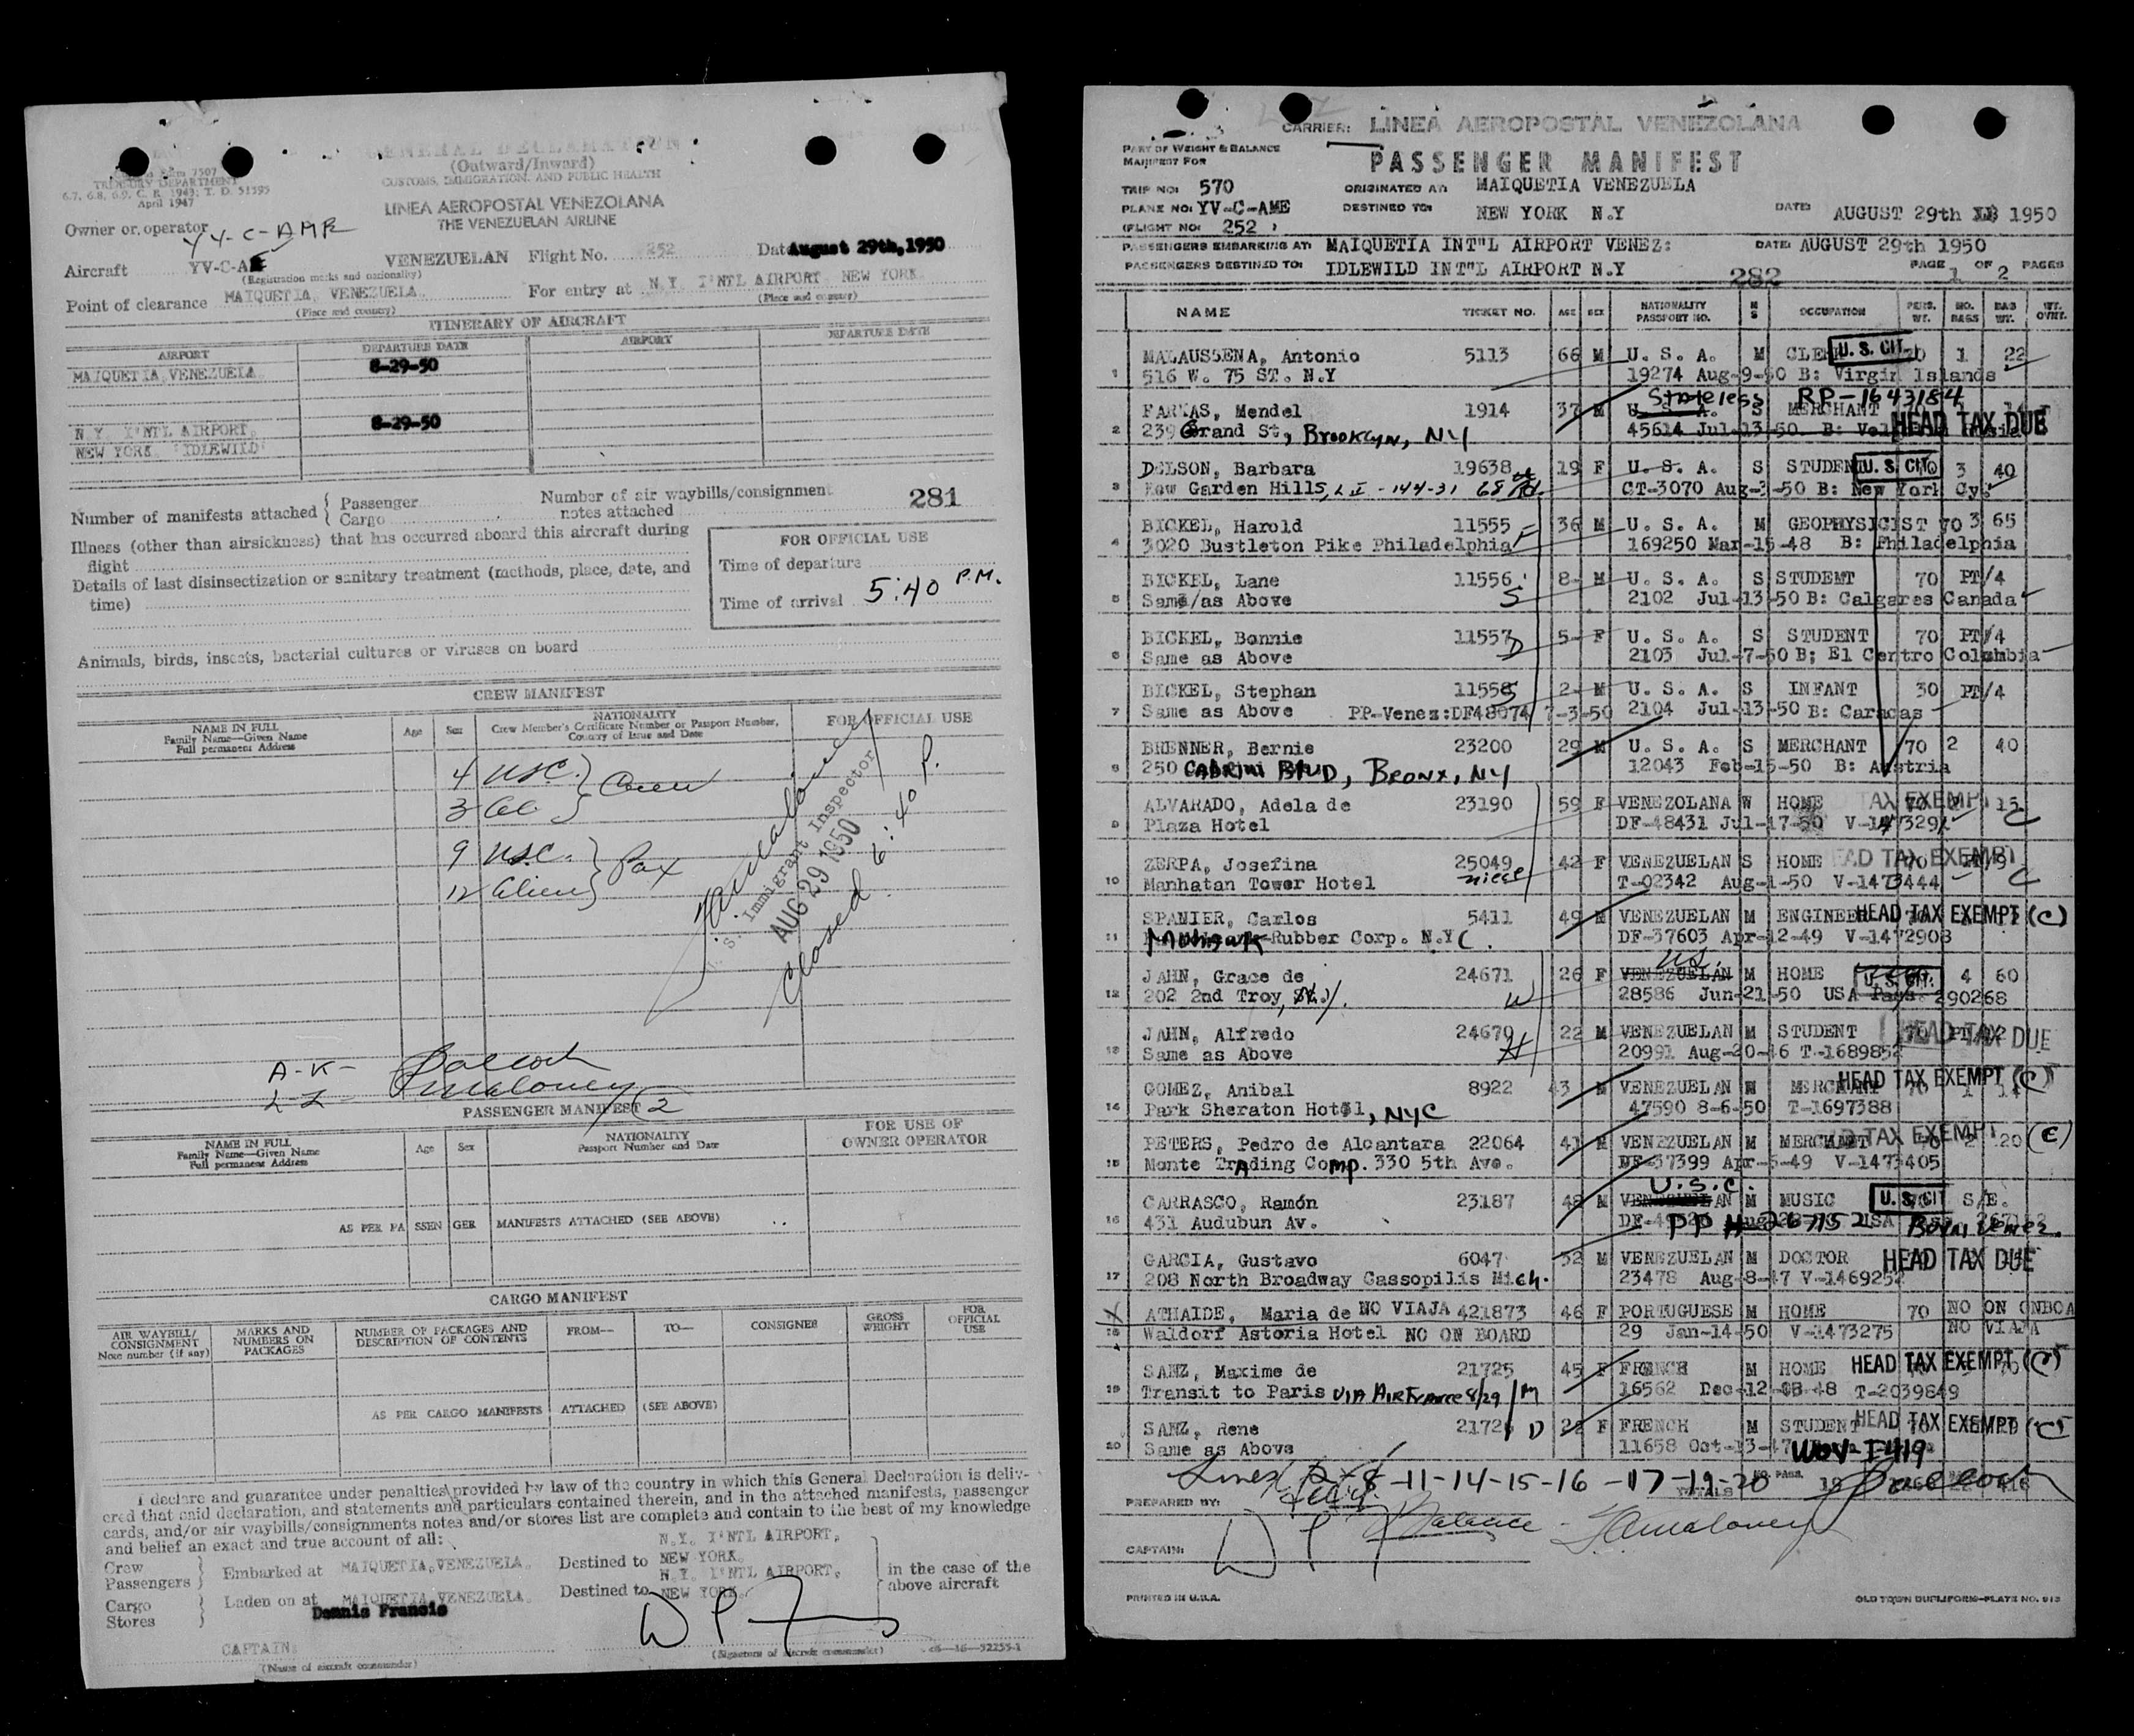 GENERAL DECLARATION
(Outward/Inward)
CUSTOMS, IMMIGRATION, AND PUBLIC HEALTH
Form 7507
TREASURY DEPARTMENT
6.7, 6.8, 6.9, C. R. 1943; T. D. 51595
April 1947
LINEA AEROPOSTAL VENEZOLANA
THE VENEZUELAN AIRLINE
Owner or operator
YV-C-AME
Aircraft YV-C-A VENEZUELAN Flight No. 252 Date August 29th, 1950
(Registration marks and nationality)
Point of clearance MAIQUETIA, VENEZUELA. For entry at N.Y. I'NTL AIRPORT, NEW YORK
(Place and country) (Place and country)
ITINERARY OF AIRCRAFT
AIRPORT DEPARTURE DATE AIRPORT DEPARTURE DATE
MAIQUETIA, VENEZUELA. 8-29-50
N.Y. I'NTL AIRPORT, 8-29-50
NEW YORK "IDLEWILD"
Number of manifests attached { Passenger
Cargo
Number of air waybills/consignment
notes attached
281
Illness (other than airsickness) that has occurred aboard this aircraft during
flight
Details of last disinsectization or sanitary treatment (methods, place, date, and
time)
FOR OFFICIAL USE
Time of departure
Time of arrival 5:40 P.M.
Animals, birds, insects, bacterial cultures or viruses on board
CREW MANIFEST
NAME IN FULL
Family Name—Given Name
Full permanent Address
Age Sex
NATIONALITY
Crew Member's Certificate Number or Passport Number,
Country of Issue and Date
FOR OFFICIAL USE
4 USC. } Crew
3
9 USC. } Pax
12 Aliens
U. S. Immigrant Inspector
AUG 29 1950
Closed 6:40 P.
A-K-
L-Z - Maloney
PASSENGER MANIFEST
NAME IN FULL
Family Name—Given Name
Full permanent Address
Age Sex
NATIONALITY
Passport Number and Date
FOR USE OF
OWNER OPERATOR
AS PER PASSENGER MANIFESTS ATTACHED (SEE ABOVE)
CARGO MANIFEST
AIR WAYBILL/
CONSIGNMENT
Note number (if any)
MARKS AND
NUMBERS ON
PACKAGES
NUMBER OF PACKAGES AND
DESCRIPTION OF CONTENTS
FROM— TO— CONSIGNEE
GROSS
WEIGHT
FOR
OFFICIAL
USE
AS PER CARGO MANIFESTS ATTACHED (SEE ABOVE)
I declare and guarantee under penalties provided by law of the country in which this General Declaration is deliv-
ered that said declaration, and statements and particulars contained therein, and in the attached manifests, passenger
cards, and/or air waybills/consignments notes and/or stores list are complete and contain to the best of my knowledge
and belief an exact and true account of all:
Crew
Passengers } Embarked at MAIQUETIA, VENEZUELA. Destined to N.Y. I'NTL AIRPORT, NEW YORK.
Cargo
Stores } Laden on at MAIQUETIA, VENEZUELA. Destined to N.Y. I'NTL AIRPORT, NEW YORK.
in the case of the
above aircraft
Dennis Francis
CAPTAIN:
(Name of aircraft commander) (Signature of aircraft commander) 16—52255-1
CARRIER: LINEA AEROPOSTAL VENEZOLANA
PART OF WEIGHT & BALANCE
MANIFEST FOR
PASSENGER MANIFEST
TRIP NO: 570 ORIGINATED AT: MAIQUETIA VENEZUELA
PLANE NO: YV-C-AME DESTINED TO: NEW YORK N.Y DATE: AUGUST 29th 1950
(FLIGHT NO: 252 )
PASSENGERS EMBARKING AT: MAIQUETIA INT"L AIRPORT VENEZ: DATE: AUGUST 29th 1950
PASSENGERS DESTINED TO: IDLEWILD INT"L AIRPORT N.Y PAGE 1 OF 2 PAGES
282
NAME TICKET NO. AGE SEX NATIONALITY PASSPORT NO. M S OCCUPATION PERS. WT. NO. BAGS BAG WT. WT. OVWT.
1 MALAUSSENA, Antonio 5113 66 M U. S. A. M CLERK U. S. CIT. 1 22
516 W. 75 ST. N.Y 19274 Aug-9-50 B: Virgin Islands
Stateless RP-1643184
2 FARYAS, Mendel 1914 37 M U. S. A. S MERCHANT HEAD TAX DUE
239 Grand St, Brooklyn, NY 45614 Jul-13-50. B:
3 DELSON, Barbara 19638 19 F U. S. A. S STUDENT U. S. CIT. 3 40
Kew Garden Hills, L I - 144-31 68 Rd. CT-3070 Aug-3-50 B: New York Cy.
4 BICKEL, Harold 11555 F 36 M U. S. A. M GEOPHYSICIST 70 3 65
3020 Bustleton Pike Philadelphia 169250 Mar-15-48 B: Philadelphia
5 BICKEL, Lane 11556 S 8- M U. S. A. S STUDENT 70 PT/4
Same/as Above 2102 Jul-13-50 B: Calgares Canada
6 BICKEL, Bonnie 11557 D 5- F U. S. A. S STUDENT 70 PT/4
Same as Above 2103 Jul-7-50 B; El Centro Colombia
7 BICKEL, Stephan 11558 S 2- M U. S. A. S INFANT 30 PT/4
Same as Above PP-Venez:DF48074 7-3-50 2104 Jul-13-50 B: Caracas
8 BRENNER, Bernie 23200 29 M U. S. A. S MERCHANT 70 2 40
250 CABRINI Blvd, BRONX, NY 12043 Feb-15-50 B: Austria
9 ALVARADO, Adela de 23190 59 F VENEZOLANA W HOME TAX EXEMPT 15 C
Plaza Hotel DF-48431 Jul-17-50 V-1473291
10 ZERPA, Josefina 25049 niece 42 F VENEZUELAN S HOME HEAD TAX EXEMPT C
Manhatan Tower Hotel T-02342 Aug-1-50 V-1473444
11 SPANIER, Carlos 5411 49 M VENEZUELAN M ENGINEER HEAD TAX EXEMPT (C)
Mohawk Rubber Corp. N.Y C. DF-37603 Apr-12-49 V-1472908
12 JAHN, Grace de 24671 W 26 F US. VENEZUELAN M HOME U. S. CIT. 4 60
202 2nd Troy, 28586 Jun-21-50 USA Pass. 290268
13 JAHN, Alfredo 24670 H 22 M VENEZUELAN M STUDENT HEAD TAX DUE
Same as Above 20991 Aug-20-46 T-1689852
14 GOMEZ, Anibal 8922 43 M VENEZUELAN M MERCHANT HEAD TAX EXEMPT (C)
Park Sheraton Hotel, NYC 47590 8-6-50 T-1697388
15 PETERS, Pedro de Alcantara 22064 41 M VENEZUELAN M MERCHANT HEAD TAX EXEMPT 2 20 (C)
Monte Trading Comp. 330 5th Ave. DF-37399 Apr-5-49 V-1473405
U.S.C.
16 CARRASCO, Ramón 23187 48 M VENEZUELAN M MUSIC U. S. CIT S/E.
431 Audubun Av. PP # 267152 Born Venez.
17 GARCIA, Gustavo 6047 52 M VENEZUELAN M DOCTOR HEAD TAX DUE
208 North Broadway Cassopilis Mich. 23478 Aug-8-47 V-1469252
18 ATHAIDE, Maria de NO VIAJA 421873 46 F PORTUGUESE M HOME 70 NO ON ONBOA
Waldorf Astoria Hotel NO ON BOARD 29 Jan-14-50 V-1473275 NO VIAJA
19 SANZ, Maxime de 21725 45 F FRENCH M HOME HEAD TAX EXEMPT (C)
Transit to Paris VIA AIR France 8/29 M 16562 Dec-12-48 T-2039849
20 SANZ, Rene 21726 D F FRENCH M STUDENT HEAD TAX EXEMPT (C)
Same as Above 11658 Oct-13-47 WOV-I-419
Lines 2-8-11-14-15-16-17-19-20
PREPARED BY: Balance -
CAPTAIN:
PRINTED IN U.S.A. OLD TOWN DUPLIFORM—PLATE NO. 913